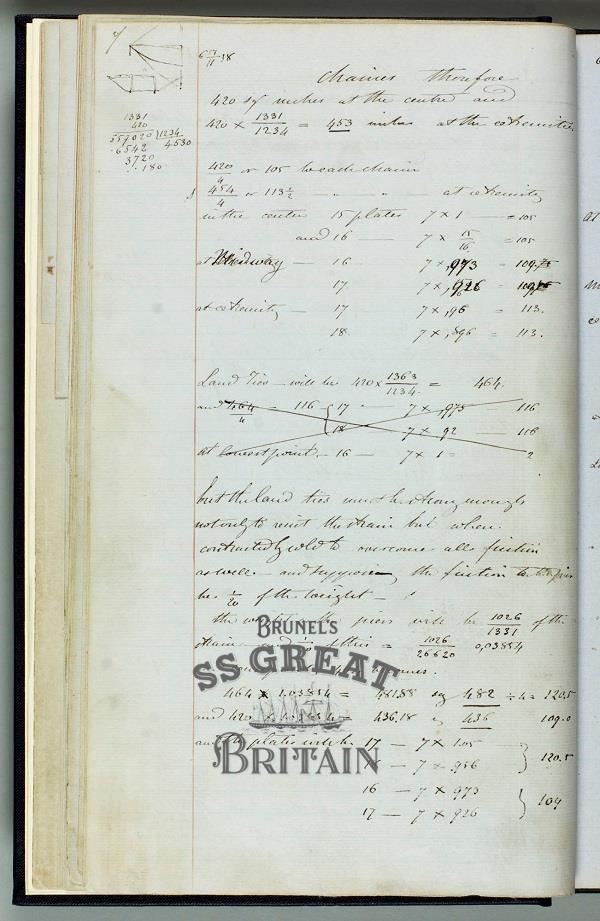 1331
420
559020 | 1234
6542 4530
3720
180
chains therefore
420 sq inches at the centre and
420 × 1331/1234 = 453 inches at the extremities
420/4 or 105 to each chain
454/4 or 113 1/2 — „ — „ — at extremity
in the centre 15 plates 7 × 1 — = 105
and 16 — 7 × 15/16 = 105
at Midway — 16 7 × ,973 = 109
17 7 × ,926 = 109
at extremity — 17 7 × ,96 = 113.
18 7 × ,896 = 113.
Land Ties — will be 420 × 1363/1234 = 464.
and 464/4 = 116 { 17 — 7 × ,975 116
18 7 × 92 — 116
at lowest point — 16 — 7 × 1 =
but the land ties must be strong enough
not only to resist the strain but when
contracted by cold to overcome all friction
as well — and suppose the friction to the piers
be 1/20 of the weight —
the weight piers will be 1026/1331 of the
strain and of this = 1026/26620 0,03854
BRUNEL'S
SS GREAT
BRITAIN
464 × 1.03854 = 481.88 say 482 ÷ 4 = 120.5
and 420 × = 436.18 436 109.0
and the plates will be 17 — 7 × 1.05
7 × 956 } 120.5
16 — 7 × 973
17 — 7 × 926 } 109